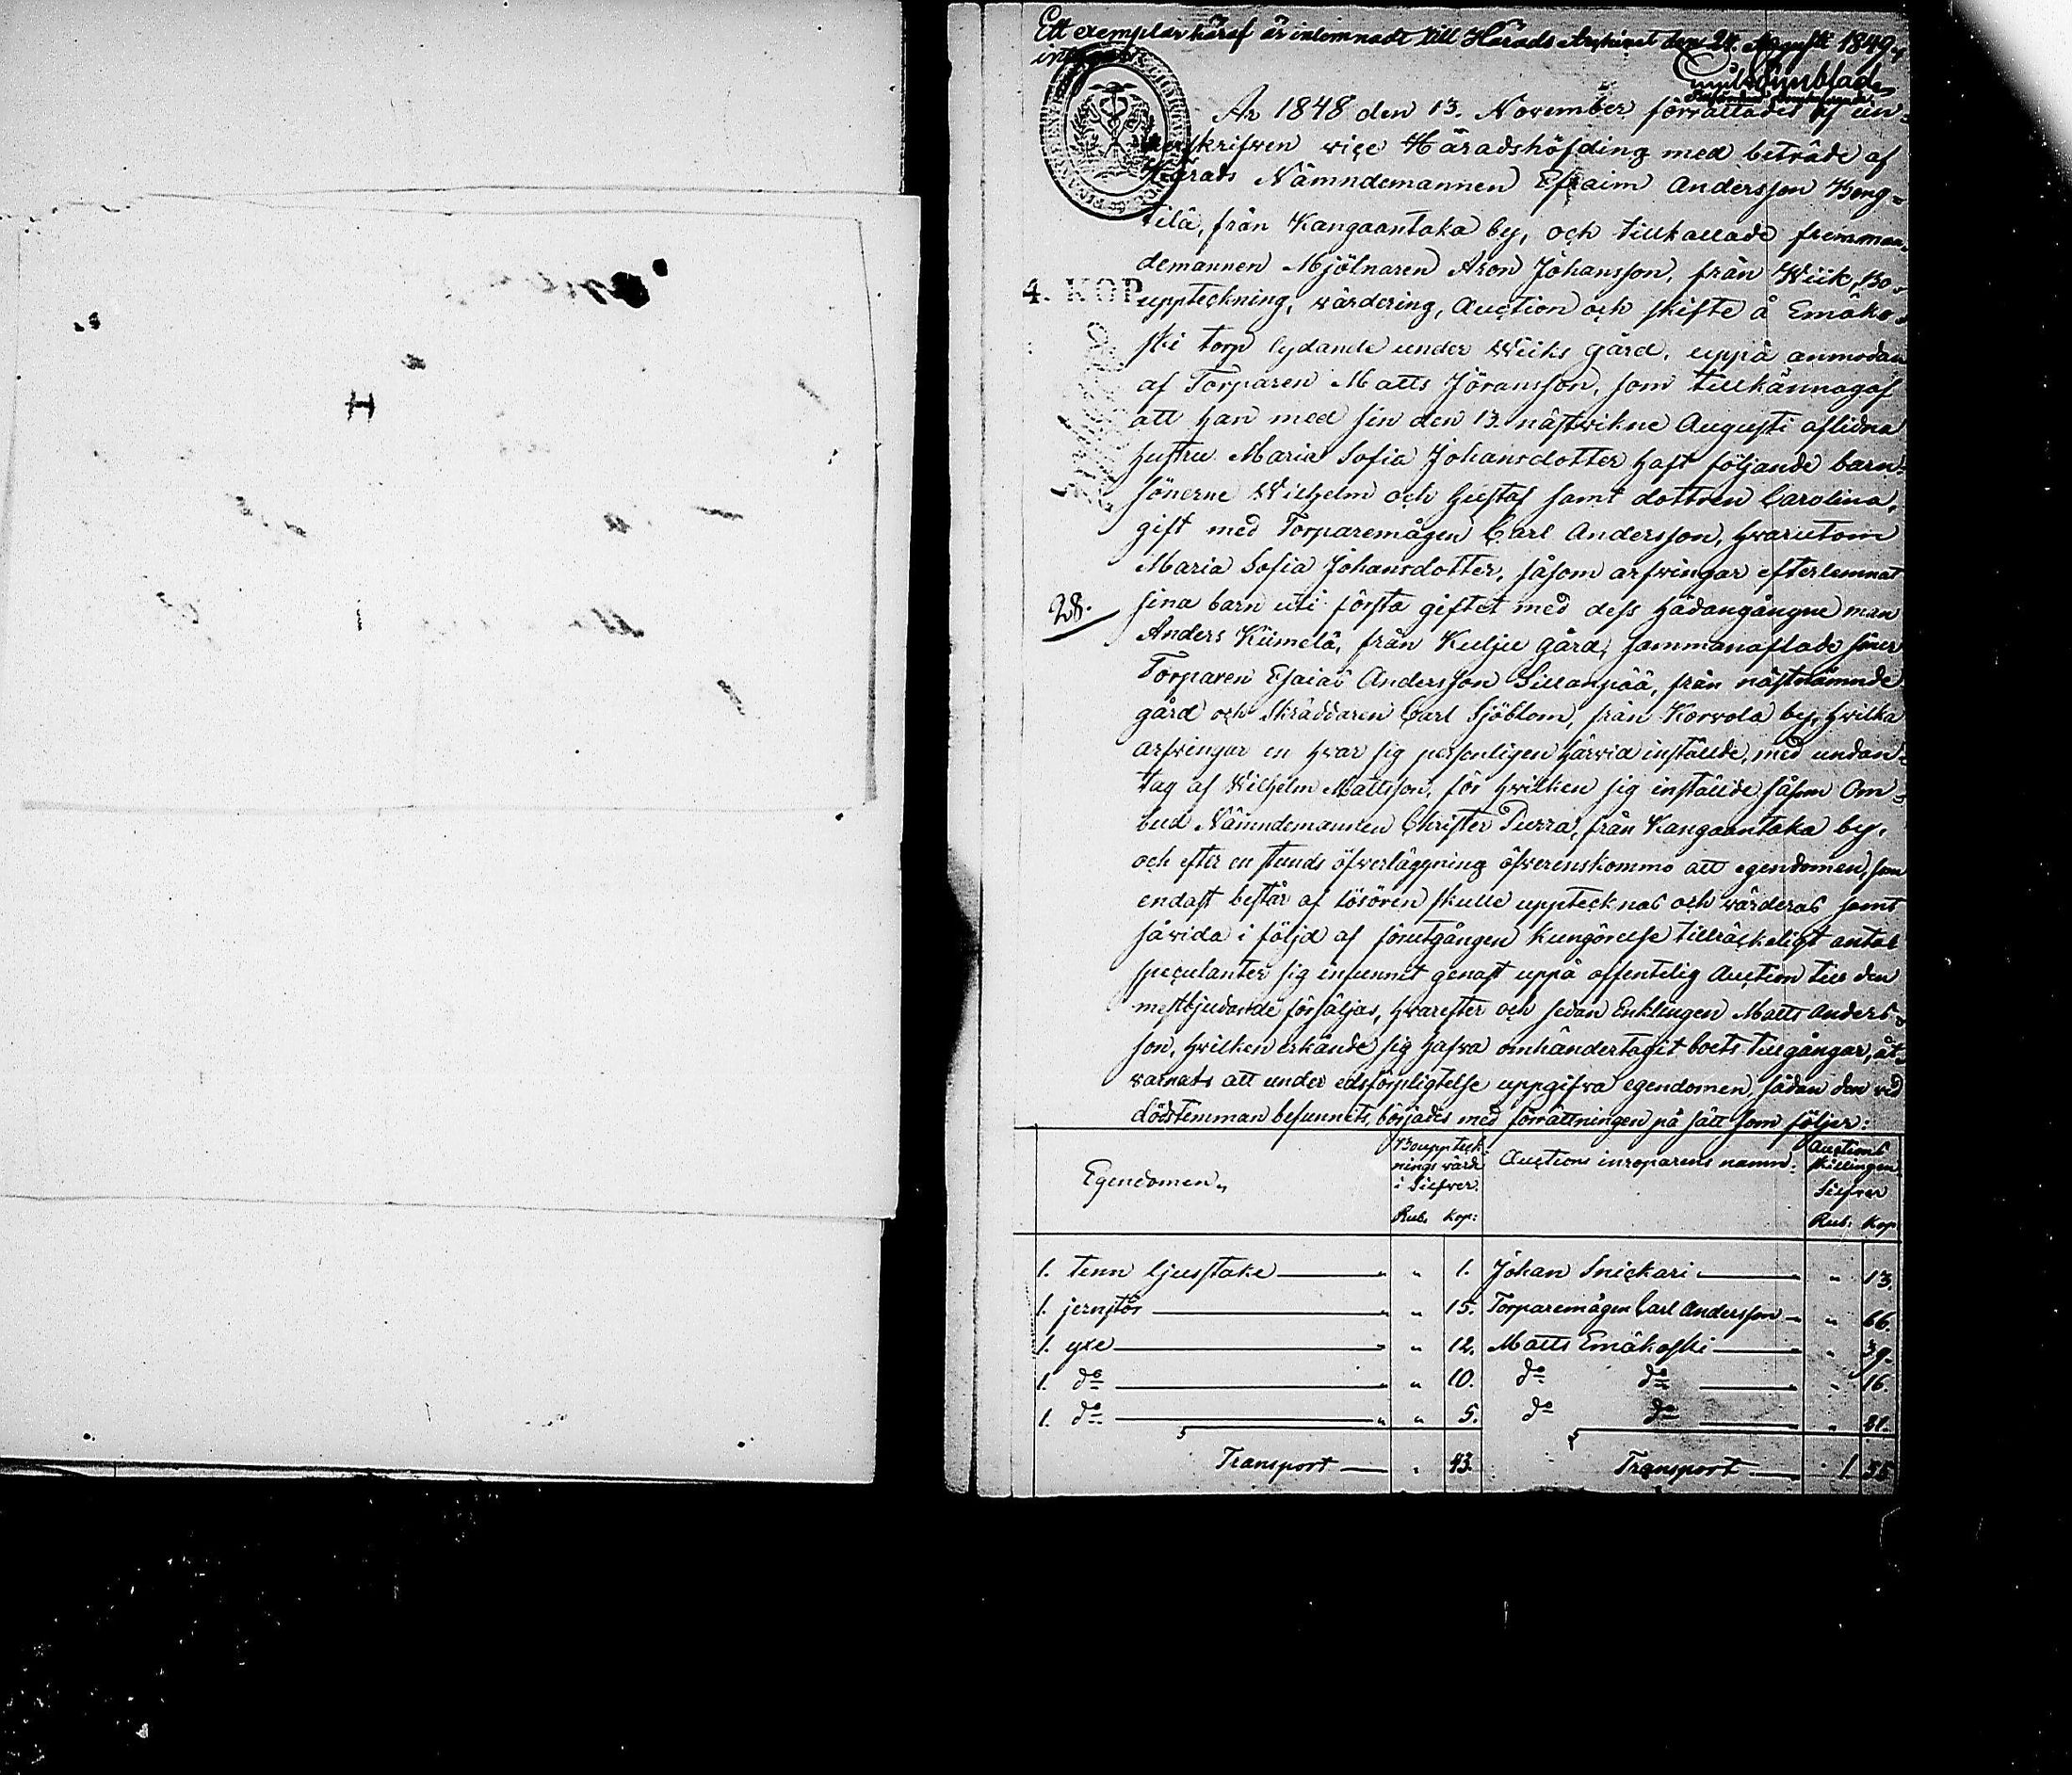 Ett exemplar häraf är inlemnadt till Härads Arkivet den 24. Augusti 1849.,
År 1848 den 13. November förrättades af un-
derskrifven vice Häradshöfding med beträde af
Härads Nämndemannen Efraim Andersson Beng-
tilä, från Kangaantaka by, och tillkallade fremman
demannen Mjölnaren Aron Johansson, från Wiik, Bo-
4. KOP
uppteckning, värdering, Auction och skifte å Emäko-
ski torp lydande under Wiiks gård, uppå anmodan
af Torparen Matts Jöransson, som tillkännagaf
att han med sin den 13. nästvikne Augusti aflidna
hustru Maria Sofia Johansdotter haft följande barn:
sönerne Wilhelm och Gustaf samt dottren Carolina,
gift med Torparemågen Carl Andersson, hvarutom
Maria Sofia Johansdotter, såsom arfvingar efterlemnat
28.
sina barn uti första giftet med dess hädangångne man
Anders Kümelä, från Kulju gård, sammanaflade söner
Torparen Esaias Andersson Sillanpää, från nästnämnde
gård och Skräddaren Carl Sjöblom, från Korvola by, hvilka
arfvingar en hvar sig personligen härvid inställde, med undan-
tag af Wilhelm Mattsson, för hvilken sig inställde såsom Om-
bud Nämndemannen Christer Purra, från Kangaantaka by,
och efter en stunds öfverläggning öfverenskommo att egendomen, som
endast består af lösören skulle upptecknas och värderas samt
såvida i följd af förutgången kungörelse tillräckeligt antal
speculanter sig infunnit genast uppå offentelig Auction till den
mestbjudande försäljas, hvarefter och sedan Enklingen Matts Anders-
son, hvilken erkände sig hafva omhändertagit boets tillgångar, åt-
varnats att under edsförpligtelse uppgifva egendomen sådan den vid
dödstemman befunnits, börjades med förrättningen på sätt som följer:
Egendomen,, Bouppteck nings värde i Silfver. Rub. Kop: Auctions inroparens namn. Auctions skillingen Silfver Rub: Kop
1. tenn ljusstake " 1. Johan Snickari " 13.
1. jernstör " 15. Torparemågen Carl Andersson " 66.
1. yxe " 12. Matts Emäkoski " 39.
1. do " 10. do do " 16.
1. do " 5. do do " 21.
Transport " 43. Transport 1 55